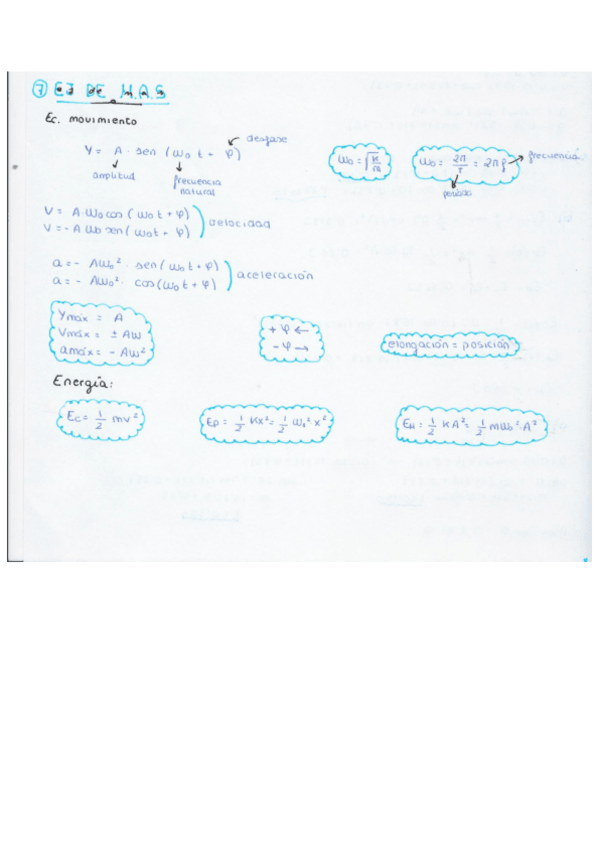 ⑦ EJ DE M.A.S
Ec. movimiento
desfase
Y = A · sen (ω₀ t + φ)
amplitud
frecuencia natural
ω₀ = √(K/m)
ω₀ = 2π/T = 2πf
frecuencia
periodo
V = A·ω₀ cos (ω₀t + φ)
V = - A ω₀ sen (ω₀t + φ)
velocidad
a = - Aω₀² · sen (ω₀t + φ)
a = - Aω₀² · cos (ω₀t + φ)
aceleración
Ymáx = A
Vmáx = ± Aω
amáx = - Aω²
+ φ ←
- φ →
elongación = posición
Energía:
Ec = 1/2 mv²
Ep = 1/2 Kx² = 1/2 ω₀² x²
EM = 1/2 KA² = 1/2 mω₀²·A²